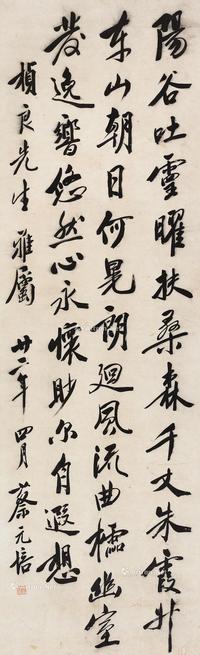 陽谷吐靈曜扶桑森千丈朱霞升
東山朝日何晃朗迴風流曲櫺幽室
發逸響悠然心永懷眇尔自遐想
楨良先生雅屬 廿二年四月 蔡元培